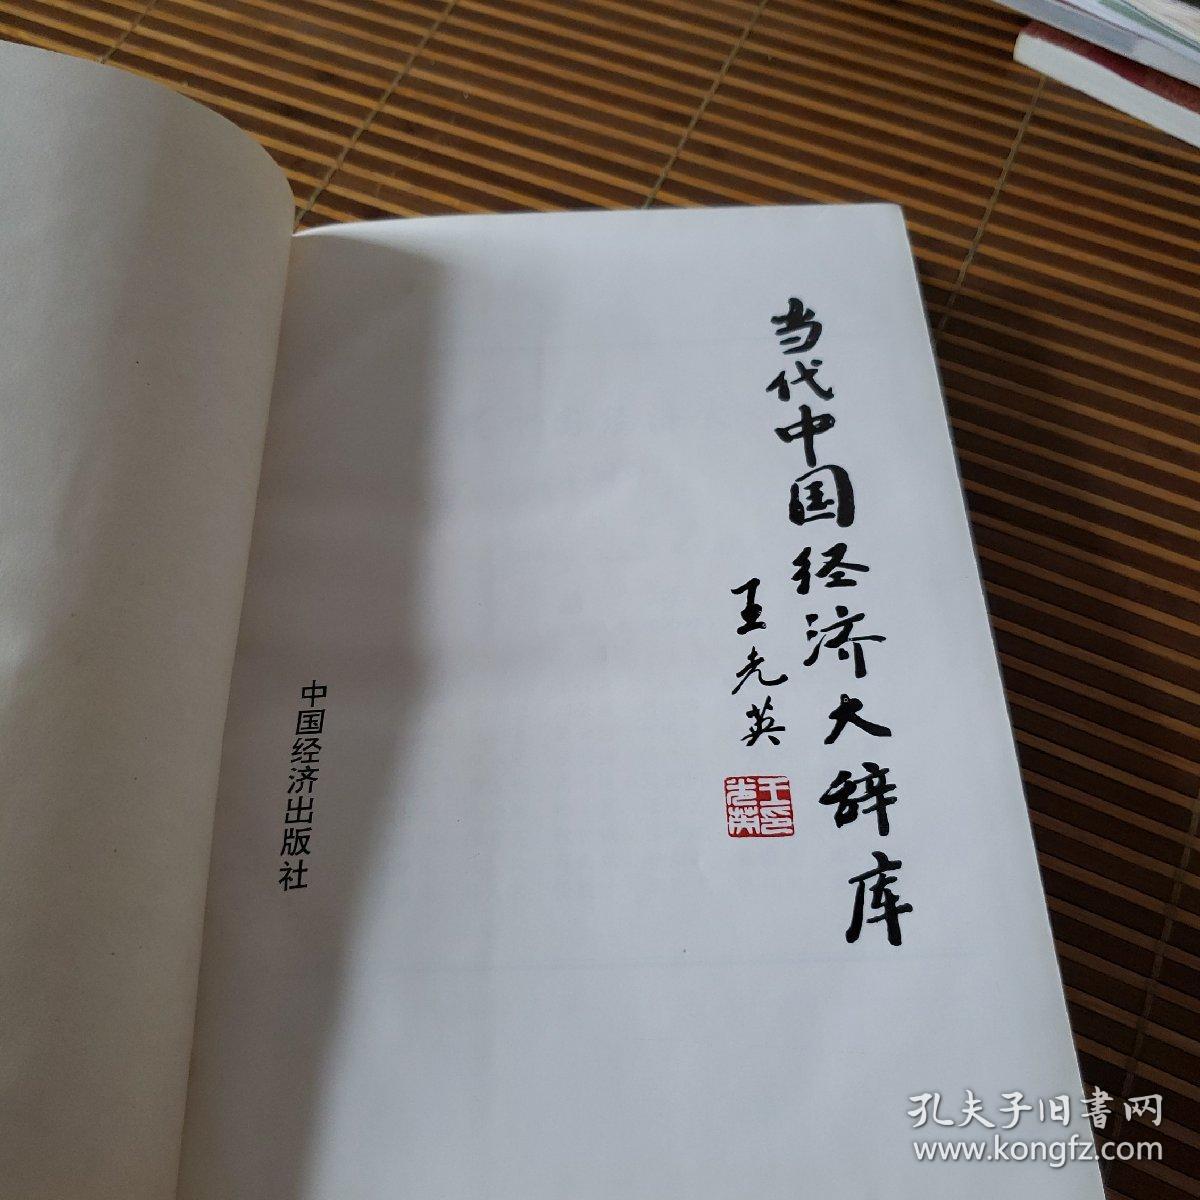 当代中国经济大辞库
王光英
王光英印
中国经济出版社
孔夫子旧书网
www.kongfz.com